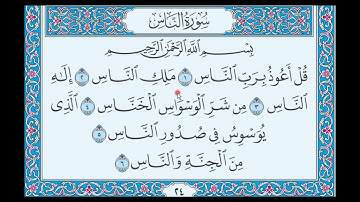 سُورَةُ النَّاسِ
بِسْمِ اللَّهِ الرَّحْمَٰنِ الرَّحِيمِ
قُلْ أَعُوذُ بِرَبِّ النَّاسِ ١ مَلِكِ النَّاسِ ٢ إِلَٰهِ
النَّاسِ ٣ مِن شَرِّ الْوَسْوَاسِ الْخَنَّاسِ ٤ الَّذِي
يُوَسْوِسُ فِي صُدُورِ النَّاسِ ٥
مِنَ الْجِنَّةِ وَالنَّاسِ ٦
٢٤